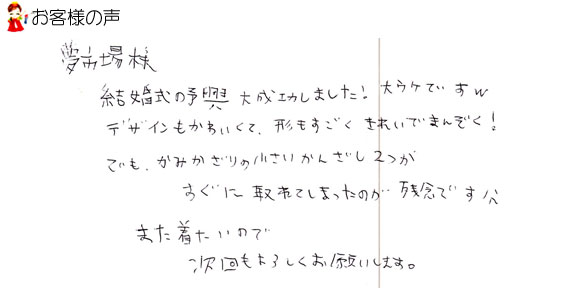 お客様の声
夢市場様
結婚式の予興 大成功しました! 大ウケですw
デザインもかわいくて、形もすごく きれいでまんぞく!
でも、かみかざりの小さいかんざし2つが
すぐに 取れてしまったのが 残念です
また着たいので
次回もよろしくお願いします。